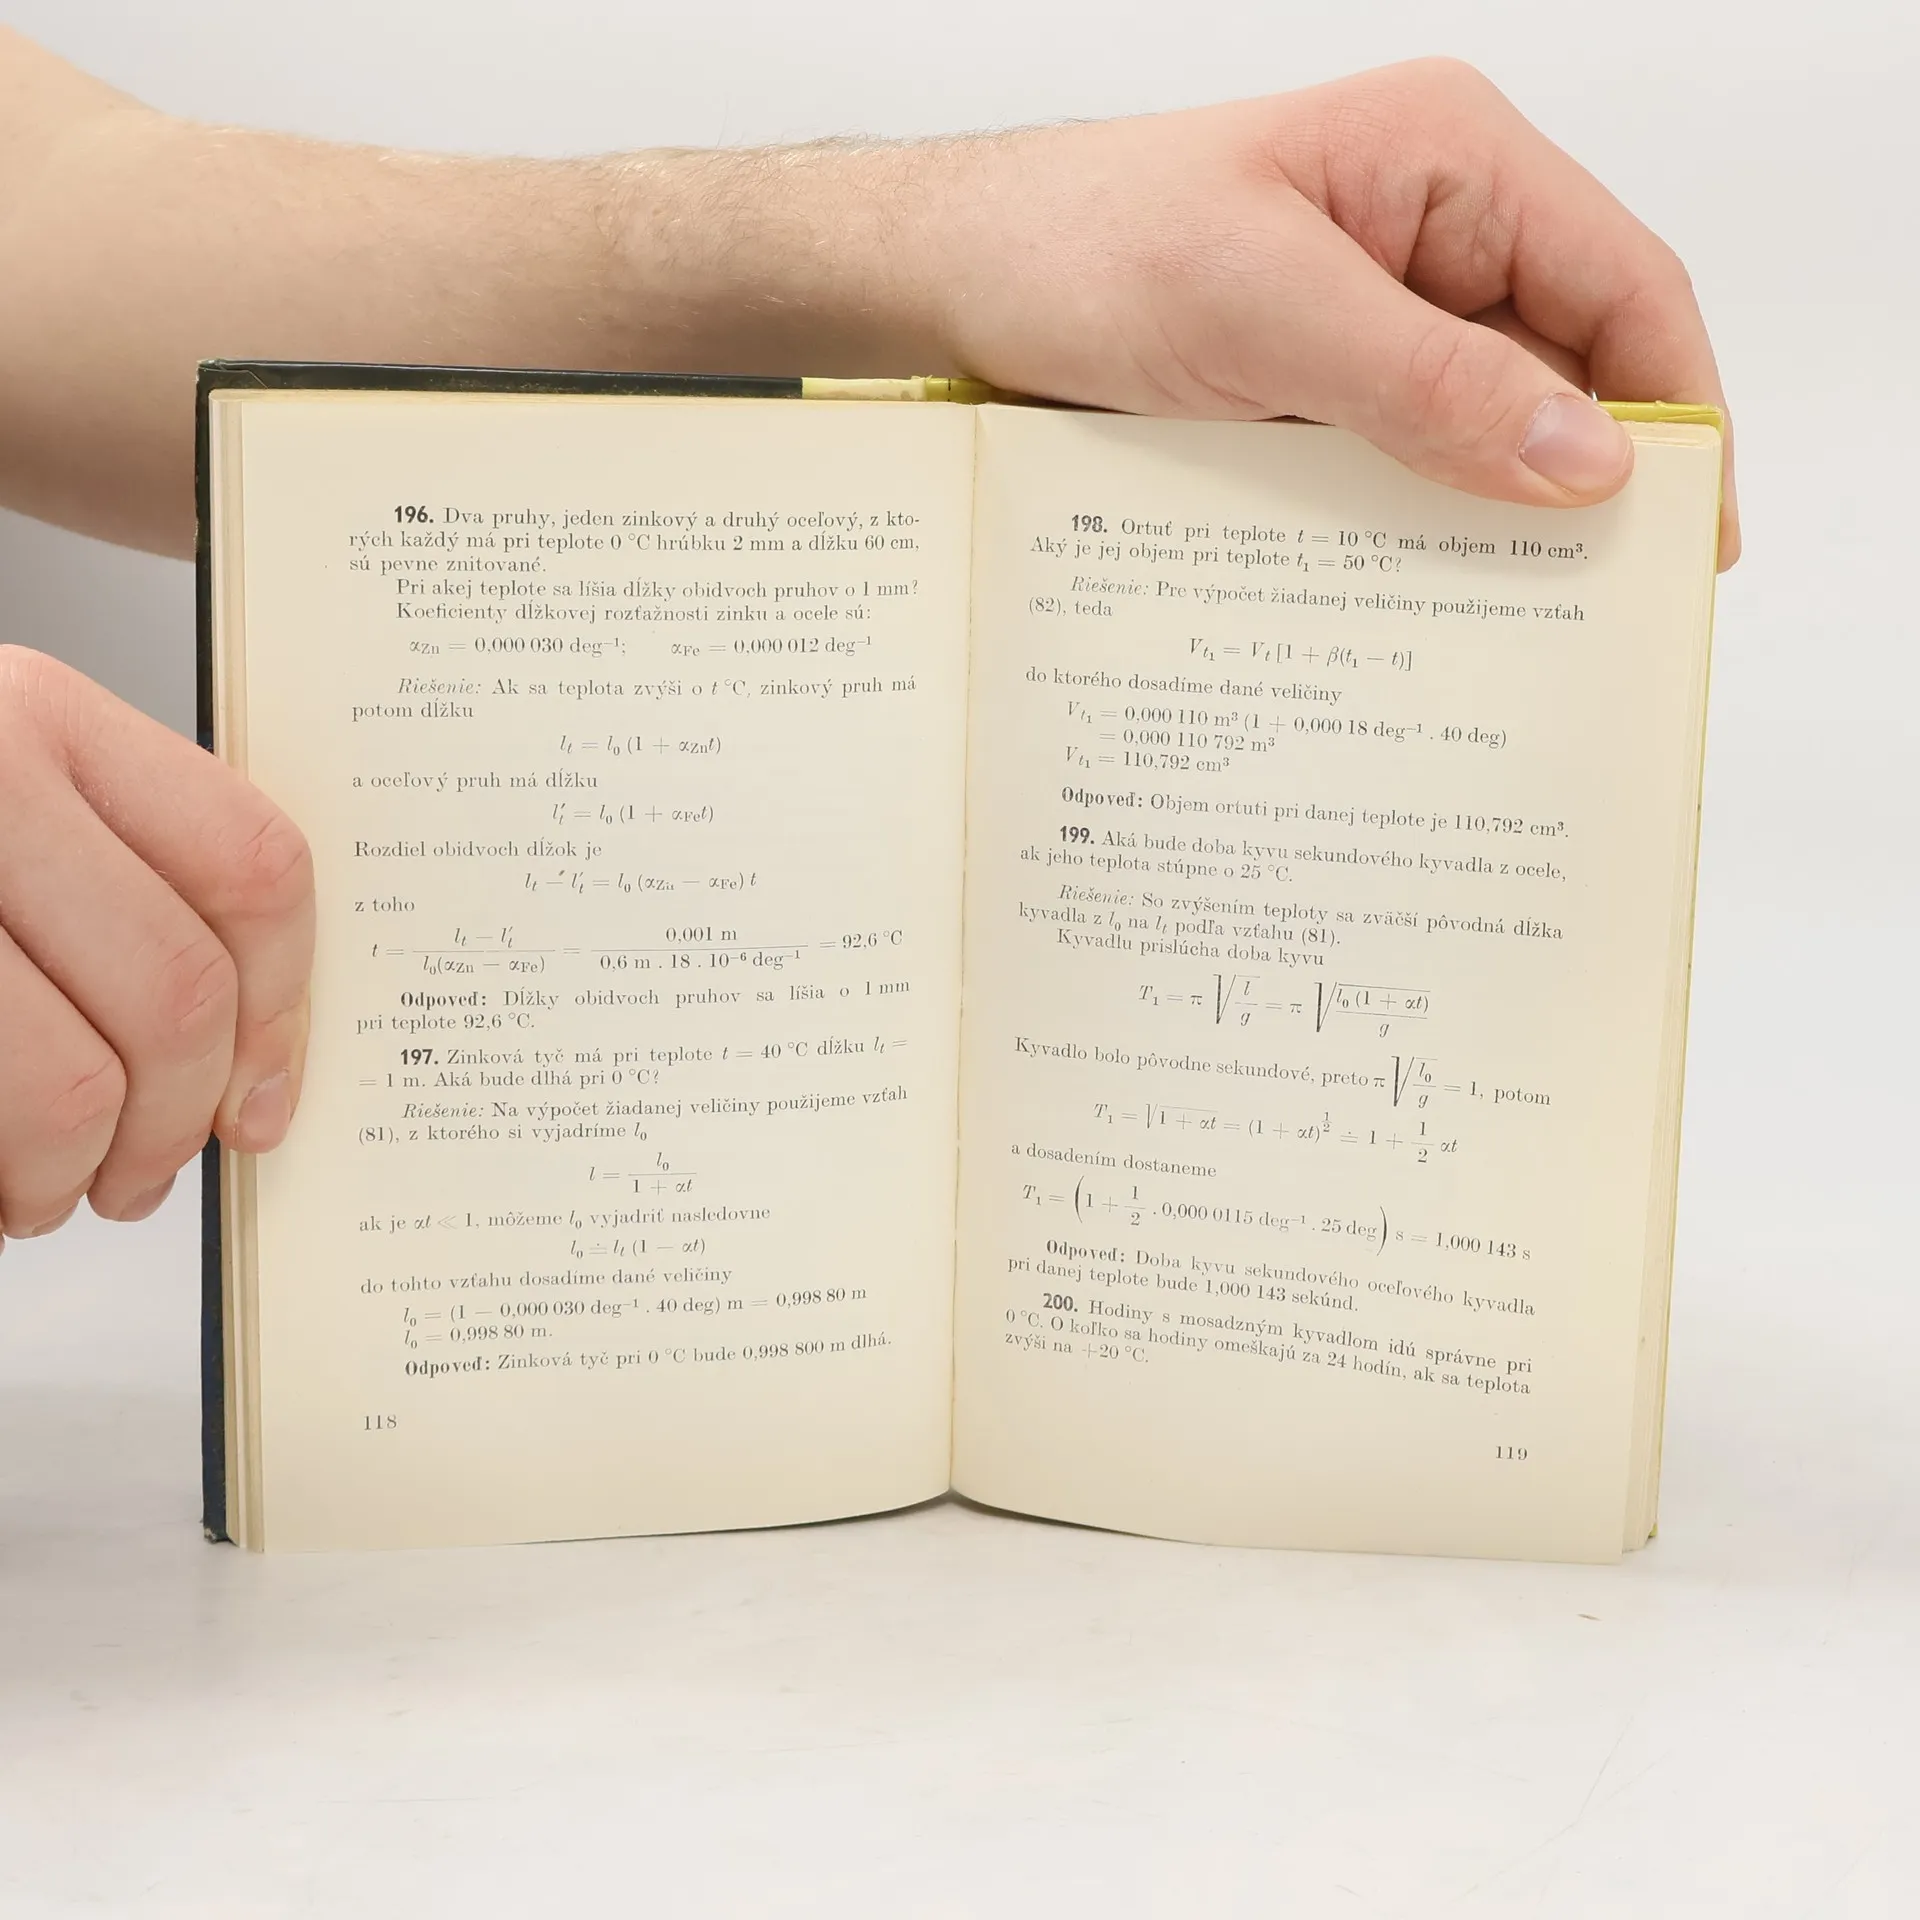 196. Dva pruhy, jeden zinkový a druhý oceľový, z kto-
rých každý má pri teplote 0 °C hrúbku 2 mm a dĺžku 60 cm,
sú pevne znitované.
Pri akej teplote sa líšia dĺžky obidvoch pruhov o 1 mm?
Koeficienty dĺžkovej rozťažnosti zinku a ocele sú:
αZn = 0,000 030 deg⁻¹; αFe = 0,000 012 deg⁻¹
Riešenie: Ak sa teplota zvýši o t °C, zinkový pruh má
potom dĺžku
lₜ = l₀ (1 + αZnt)
a oceľový pruh má dĺžku
l′ₜ = l₀ (1 + αFet)
Rozdiel obidvoch dĺžok je
lₜ − l′ₜ = l₀ (αZn − αFe) t
z toho
t = (lₜ − l′ₜ) / (l₀(αZn − αFe)) = 0,001 m / (0,6 m . 18 . 10⁻⁶ deg⁻¹) = 92,6 °C
Odpoveď: Dĺžky obidvoch pruhov sa líšia o 1 mm
pri teplote 92,6 °C.
197. Zinková tyč má pri teplote t = 40 °C dĺžku lₜ =
= 1 m. Aká bude dlhá pri 0 °C?
Riešenie: Na výpočet žiadanej veličiny použijeme vzťah
(81), z ktorého si vyjadríme l₀
l = l₀ / (1 + αt)
ak je αt ≪ 1, môžeme l₀ vyjadriť nasledovne
l₀ ≐ lₜ (1 − αt)
do tohto vzťahu dosadíme dané veličiny
l₀ = (1 − 0,000 030 deg⁻¹ . 40 deg) m = 0,998 80 m
l₀ = 0,998 80 m.
Odpoveď: Zinková tyč pri 0 °C bude 0,998 800 m dlhá.
118
198. Ortuť pri teplote t = 10 °C má objem 110 cm³.
Aký je jej objem pri teplote t₁ = 50 °C?
Riešenie: Pre výpočet žiadanej veličiny použijeme vzťah
(82), teda
Vt₁ = Vt [1 + β(t₁ − t)]
do ktorého dosadíme dané veličiny
Vt₁ = 0,000 110 m³ (1 + 0,000 18 deg⁻¹ . 40 deg)
= 0,000 110 792 m³
Vt₁ = 110,792 cm³
Odpoveď: Objem ortuti pri danej teplote je 110,792 cm³.
199. Aká bude doba kyvu sekundového kyvadla z ocele,
ak jeho teplota stúpne o 25 °C.
Riešenie: So zvýšením teploty sa zväčší pôvodná dĺžka
kyvadla z l₀ na lₜ podľa vzťahu (81).
Kyvadlu prislúcha doba kyvu
T₁ = π √(l / g) = π √(l₀ (1 + αt) / g)
Kyvadlo bolo pôvodne sekundové, preto π √(l₀ / g) = 1, potom
T₁ = √(1 + αt) = (1 + αt)^(1/2) ≐ 1 + 1/2 αt
a dosadením dostaneme
T₁ = (1 + 1/2 . 0,000 0115 deg⁻¹ . 25 deg) s = 1,000 143 s
Odpoveď: Doba kyvu sekundového oceľového kyvadla
pri danej teplote bude 1,000 143 sekúnd.
200. Hodiny s mosadzným kyvadlom idú správne pri
0 °C. O koľko sa hodiny omeškajú za 24 hodín, ak sa teplota
zvýši na +20 °C.
119